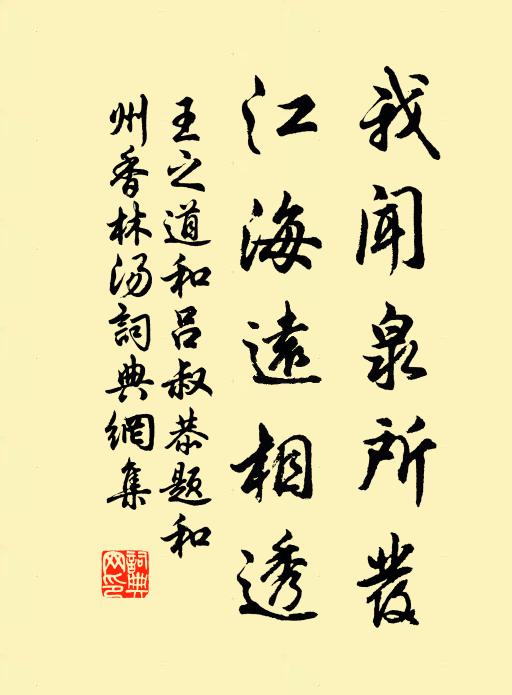 我闻泉所發
江海遠相透
王之道和吕叔恭题和
州香林汤詞典網集
詞典网印